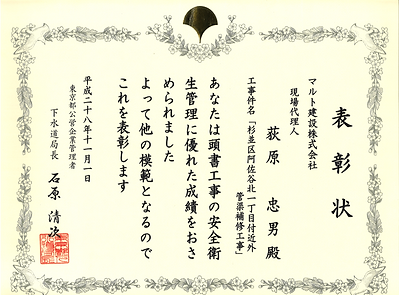 表彰状
マルト建設株式会社
現場代理人
荻原 忠男 殿
工事件名「杉並区阿佐谷北一丁目付近外
管渠補修工事」
あなたは頭書工事の安全衛
生管理に優れた成績をおさ
められました
よって他の模範となるので
これを表彰します
平成二十八年十一月一日
東京都公営企業管理者
下水道局長 石原 清次